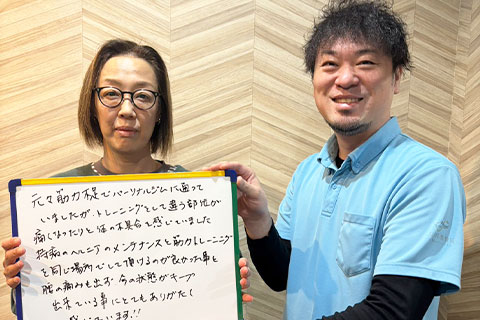 元々筋力不足でパーソナルジムに通って
いましたが、トレーニングとして違う部位が
痛くなったりと体の不具合を感じていました
持病のヘルニアのメンテナンスと筋力トレーニング
を同じ場所でして頂けるのが良かった事と
腰の痛みも出ず今の状態がキープ
出来ている事にとてもありがたく
感じています!!